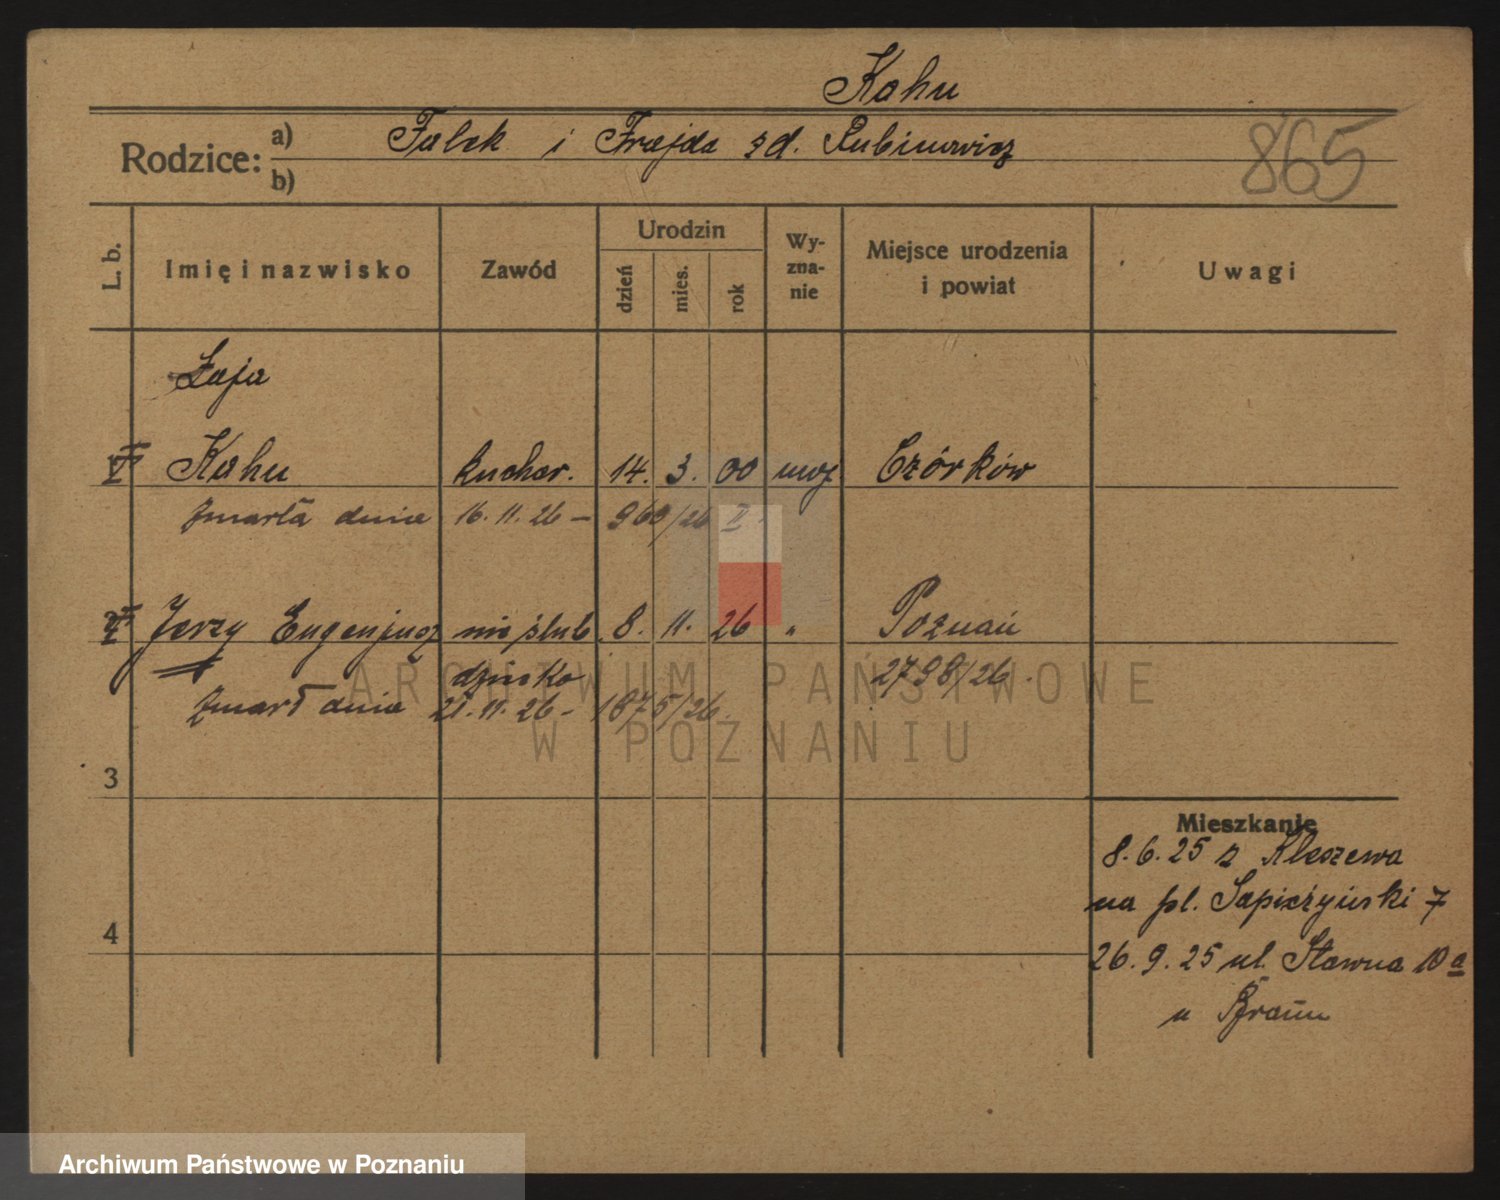 Kahn
Rodzice: a) Falek i Frajda zd. Rubinowicz
b)
865
L. b.
Imię i nazwisko
Zawód
Urodzin
dzień
mies.
rok
Wy-
zna-
nie
Miejsce urodzenia
i powiat
Uwagi
Łaja
Kahn kuchar. 14. 3. 00 mojż Czórków
zmarła dnia 16. 11. 26 – 960/26 II.
Jerzy Eugenjusz nieślub. 8. 11. 26 " Poznań
dziecko 2798/26.
zmarł dnia 21. 11. 26 – 1875/26
3
4
Mieszkanie
8. 6. 25 z Kleszewa
na pl. Sapieżyński 7
26. 9. 25 ul. Stawna 10 a
u Braun
ARCHIWUM PAŃSTWOWE
W POZNANIU
Archiwum Państwowe w Poznaniu